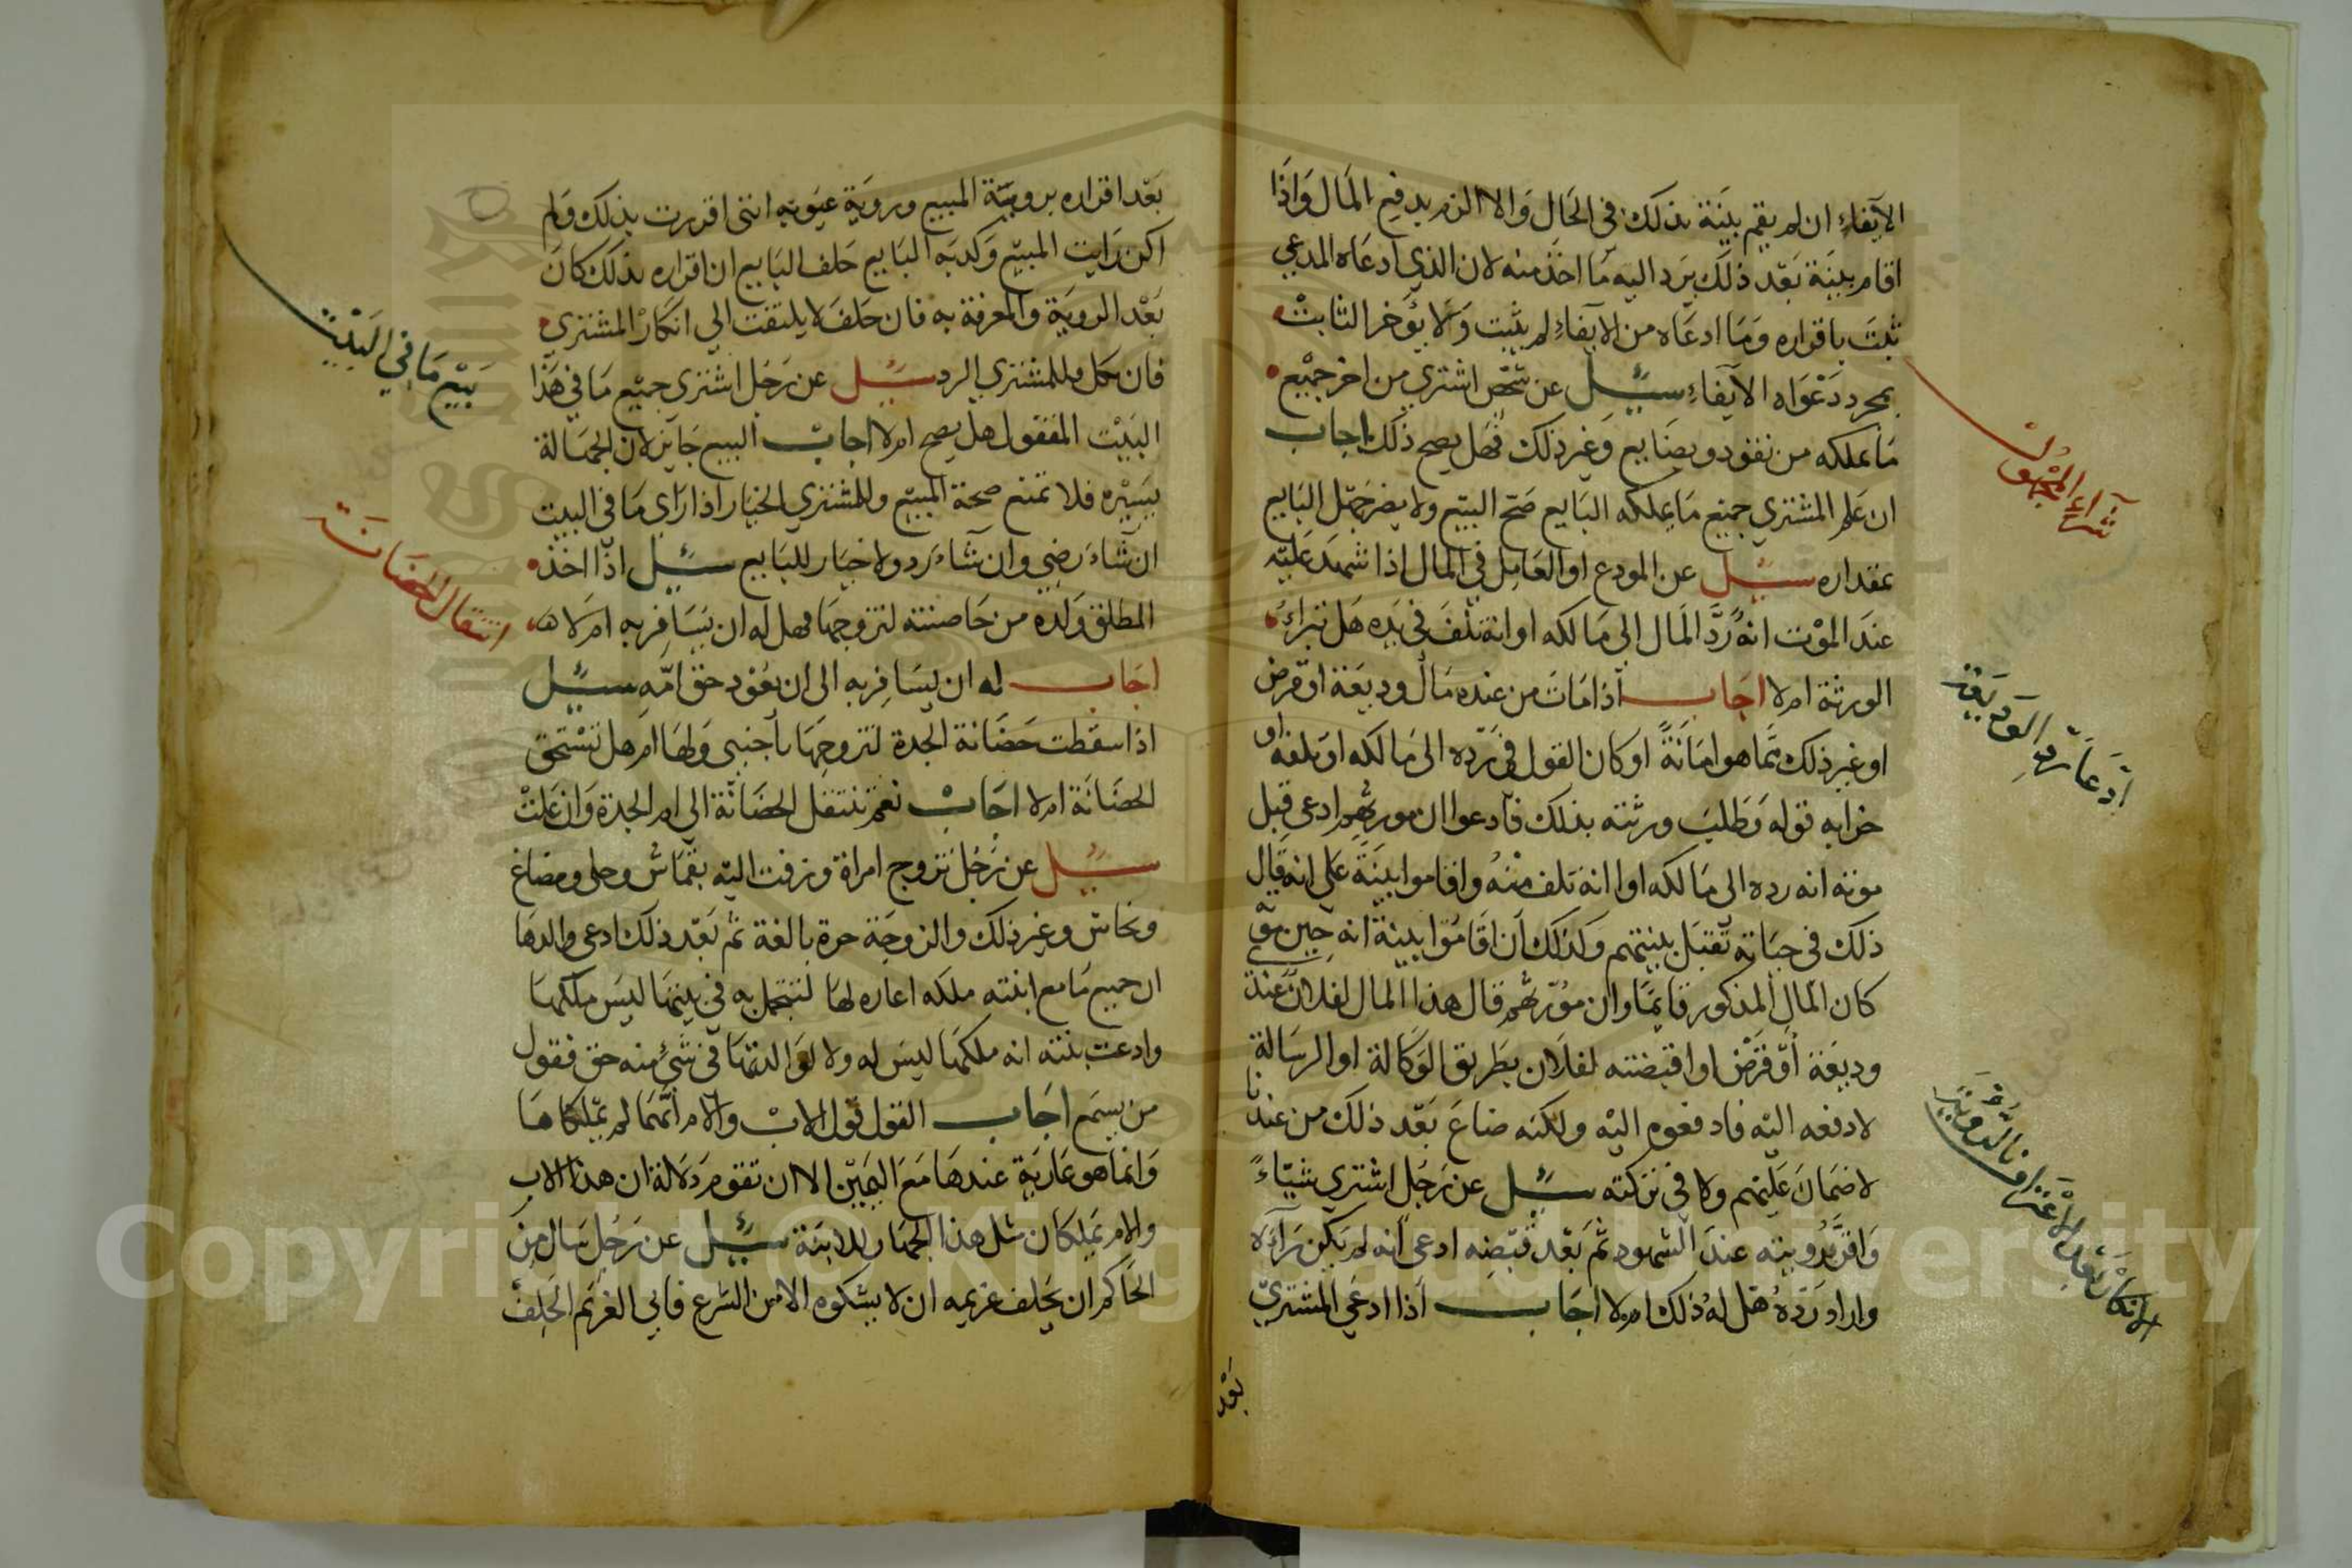 الآيفاء ان لم يقم بينة بذلك في الحال والا الزم بدفع المال واذا
اقام بينة بعد ذلك يرد اليه ما اخذ منه لان الذي ادعاه المدعي
ثبت باقراره وما ادعاه من الايفاء لم يثبت ولا يؤخر الثابت
بمجرد دعواه الآيفاء سيل عن شخص اشتري من اخر جميع
ما يملكه من نقود وبضايع وغير ذلك فهل يصح ذلك اجاب
ان علم المشتري جميع ما يملكه البايع صح البيع ولا يضر جهل البايع
بمقداره سيل عن المودع او العامل في المال اذا شهد عليه
عند الموت انه رد المال الى مالكه او انه تلف في يده هل تبراء
الورثة ام لا اجاب اذا مات من عنده مال وديعة او قرض
او غير ذلك مما هو امانة او كان القول في رده الى مالكه او تلفه او
خرابه قوله وطلب ورثته بذلك فادعوا ان مورثهم ادعى قبل
موته انه رده الى مالكه او انه تلف منه واقاموا بينة على انه قال
ذلك في حياته تقبل بينتهم وكذلك ان اقاموا بينة انه حين موته
كان المال المذكور قايما وان مورثهم قال هذا المال لفلان عندي
وديعة او قرض او اقبضته لفلان بطريق الوكالة او الرسالة
لادفعه اليه فادفعوه اليه ولكنه ضاع بعد ذلك من عندنا
لا ضمان عليهم ولا في تركته سيل عن رجل اشتري شيئاء
واقر برويته عند الشهود ثم بعد قبضه ادعى انه لم يكن رآه
واراد رده هل له ذلك ام لا اجاب اذا ادعي المشتري
بعد
شراء المجهول
ادعا رد الوديعة
الانكار بعد الاعتراف بالروية
بعد اقراره بروية المبيع وروية عيوبه انني اقررت بذلك ولم
اكن رايت المبيع وكذبه البايع حلف البايع ان اقراره بذلك كان
بعد الروية والمعرفة به فان حلف لا يلتفت الي انكار المشتري
فان نكل فللمشتري الرد سيل عن رجل اشترى جميع ما في هذا
البيت المقفول هل يصح ام لا اجاب البيع جايز لان الجهالة
يسيره فلا تمنع صحة المبيع وللمشتري الخيار اذا راى ما في البيت
ان شاء رضي وان شاء رد ولا خيار للبايع سيل اذا اخذ
المطلق ولده من حاضنته لتزوجها فهل له ان يسافر به ام لا
اجاب له ان يسافر به الى ان يعود حق امه سيل
اذا سقطت حضانة الجدة لتزوجها باجنبي ولها ام هل تستحق
الحضانة ام لا اجاب نعم تنتقل الحضانة الي ام الجدة وان علت
سيل عن رجل تزوج امراة وزفت اليه بقماش وحلى ومصاغ
ونحاس وغير ذلك والزوجة حرة بالغة ثم بعد ذلك ادعى والدها
ان جميع ما مع ابنته ملكه اعاره لها لتتجمل به في بيتها ليس ملكها
وادعت بنته انه ملكها ليس له ولا لوالدتها في شئ منه حق فقول
من يسمع اجاب القول قول الاب والام انهما لم يملكاها
وانما هو عارية عندها مع اليمين الا ان تقوم دلالة ان هذا الاب
والام يملكان مثل هذا الجهاز للابنة سيل عن رجل سال من
الحاكم ان يحلف غريمه ان لا يشكوه الا من الشرع فابي الغريم الحلف
بيع ما في البيت
انتقال الحضانة
Copyright © King Saud University